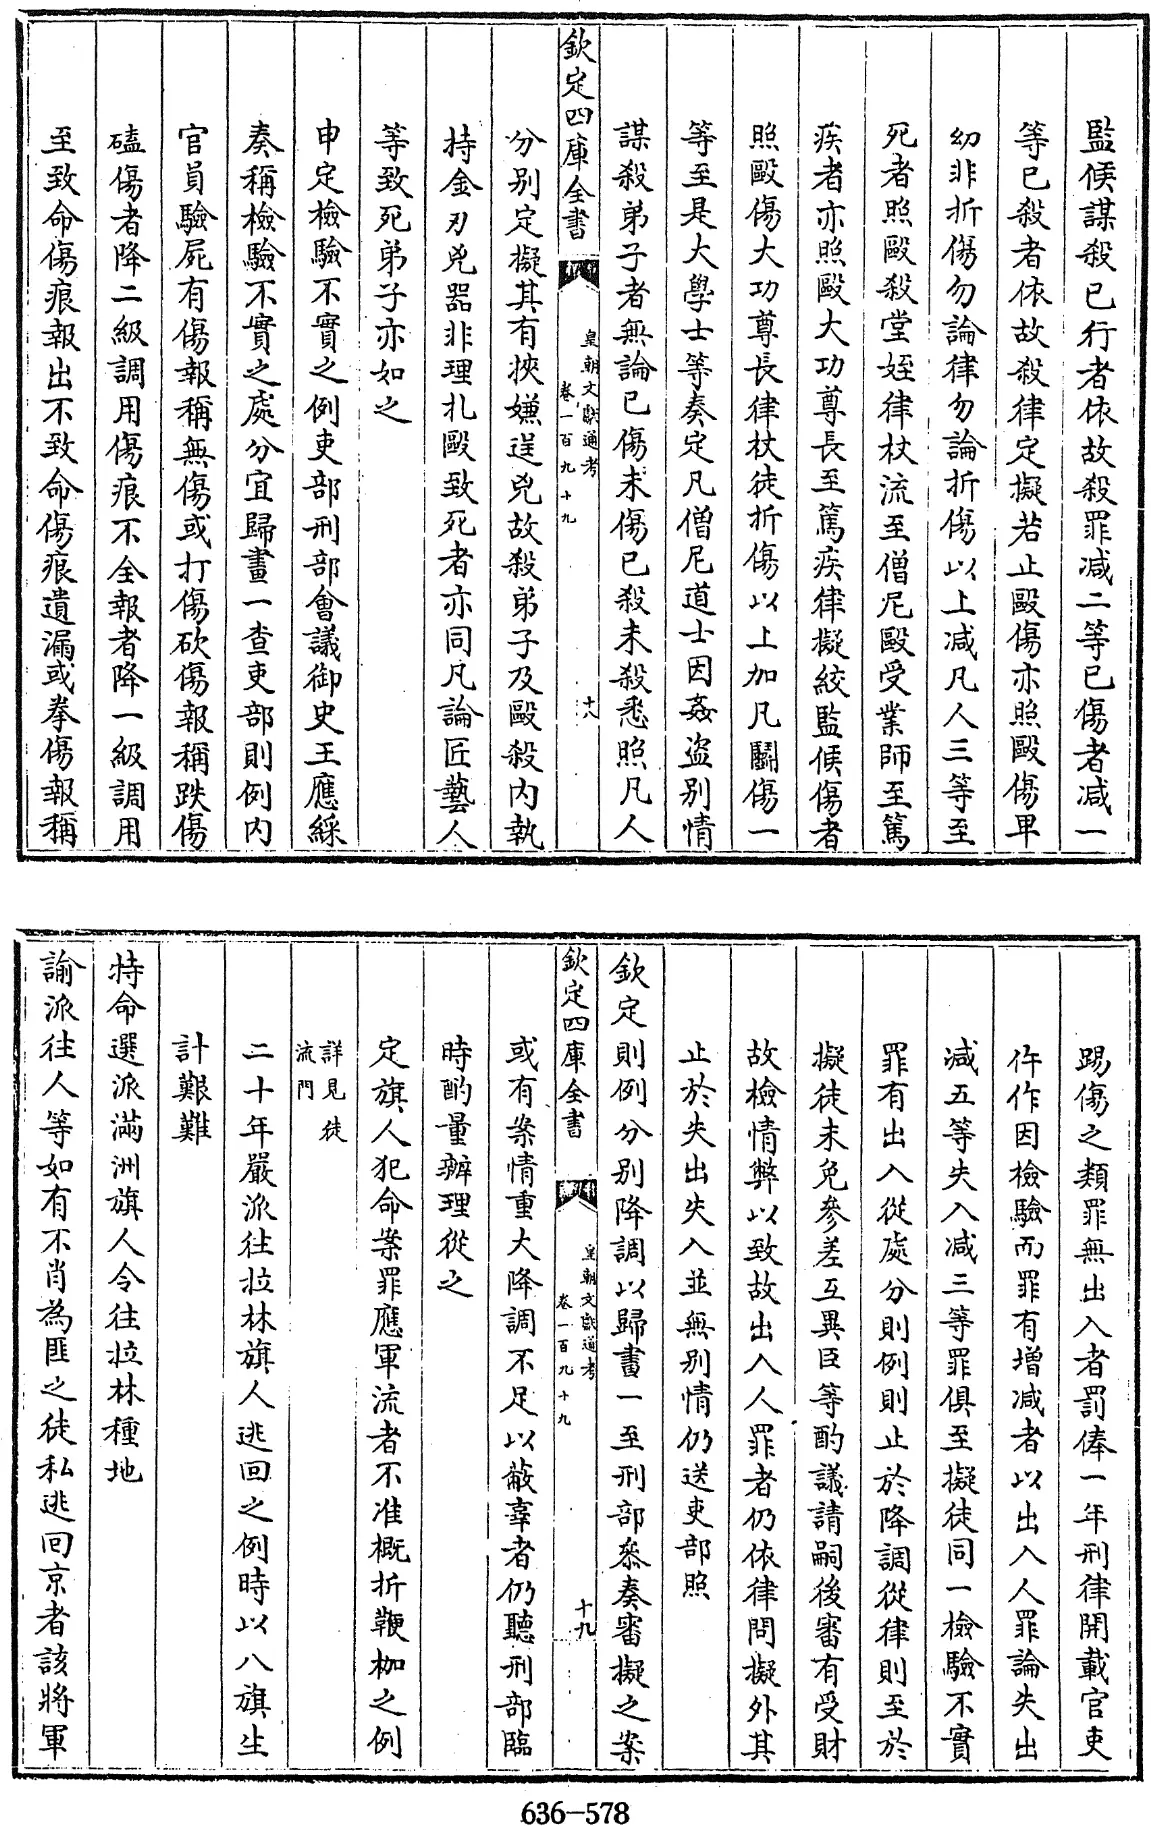 監候謀殺已行者依故殺罪减二等已傷者减一
等已殺者依故殺律定擬若止毆傷亦照毆傷卑
幼非折傷勿論律勿論折傷以上减凡人三等至
死者照毆殺堂姪律杖流至僧尼毆受業師至篤
疾者亦照毆大功尊長至篤疾律擬絞監候傷者
照毆傷大功尊長律杖徒折傷以上加凡鬬傷一
等至是大學士等奏定凡僧尼道士因姦盗别情
謀殺弟子者無論已傷未傷已殺未殺悉照凡人
欽定四庫全書
皇朝文獻通考
卷一百九十九
十八
分别定擬其有挾嫌逞兇故殺弟子及毆殺内執
持金刃兇器非理扎毆致死者亦同凡論匠藝人
等致死弟子亦如之
申定檢驗不實之例吏部刑部會議御史王應綵
奏稱檢驗不實之處分宜歸畫一查吏部則例内
官員驗屍有傷報稱無傷或打傷砍傷報稱跌傷
磕傷者降二級調用傷痕不全報者降一級調用
至致命傷痕報出不致命傷痕遺漏或拳傷報稱
踢傷之類罪無出入者罰俸一年刑律開載官吏
仵作因檢驗而罪有增减者以出入人罪論失出
减五等失入减三等罪俱至擬徒同一檢驗不實
罪有出入從處分則例則止於降調從律則至於
擬徒未免參差互異臣等酌議請嗣後審有受財
故檢情弊以致故出入人罪者仍依律問擬外其
止於失出失入並無别情仍送吏部照
欽定則例分别降調以歸畫一至刑部叅奏審擬之案
欽定四庫全書
皇朝文獻通考
卷一百九十九
十九
或有案情重大降調不足以蔽辜者仍聽刑部臨
時酌量辦理從之
定旗人犯命案罪應軍流者不准概折鞭枷之例
詳見徒
流門
二十年嚴派往拉林旗人逃回之例時以八旗生
計艱難
特命選派滿洲旗人令往拉林種地
諭派往人等如有不肖為匪之徒私逃回京者該將軍
636-578